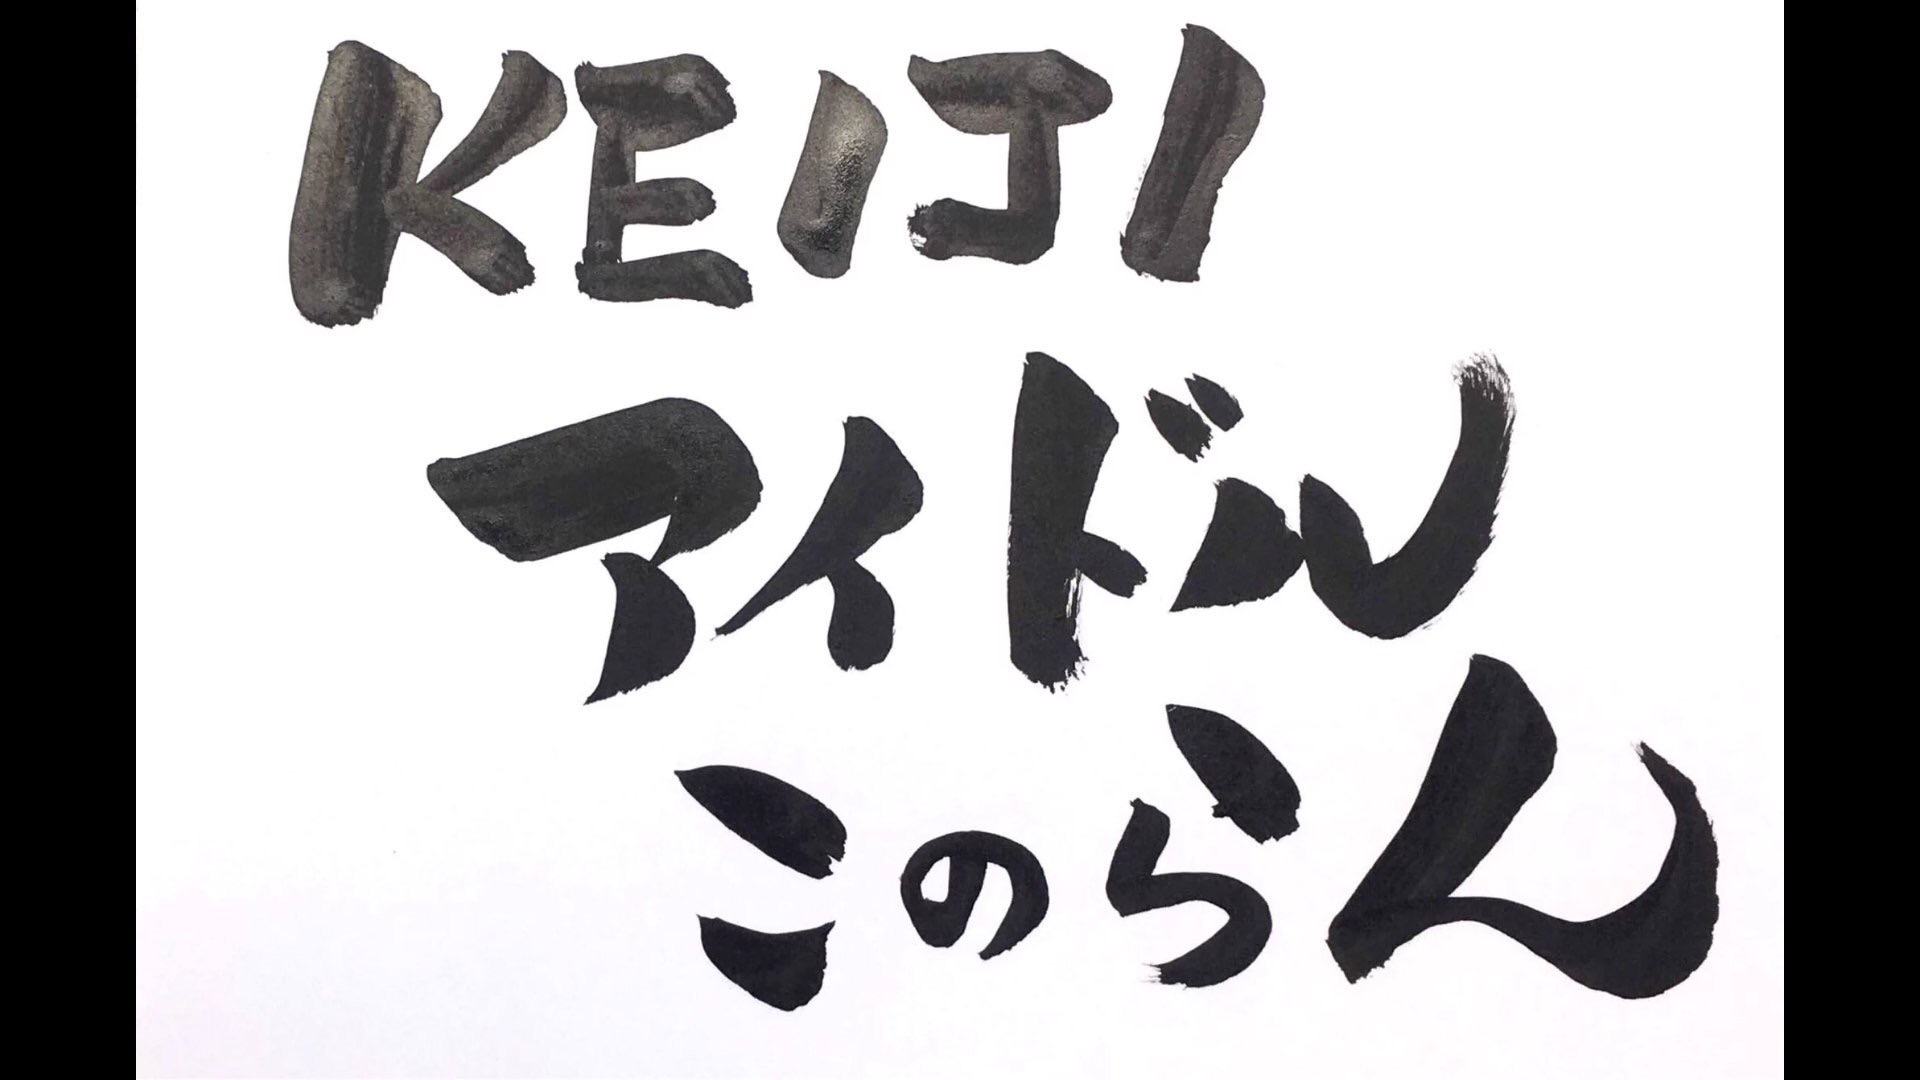 KEIJI
アイドル
このらん